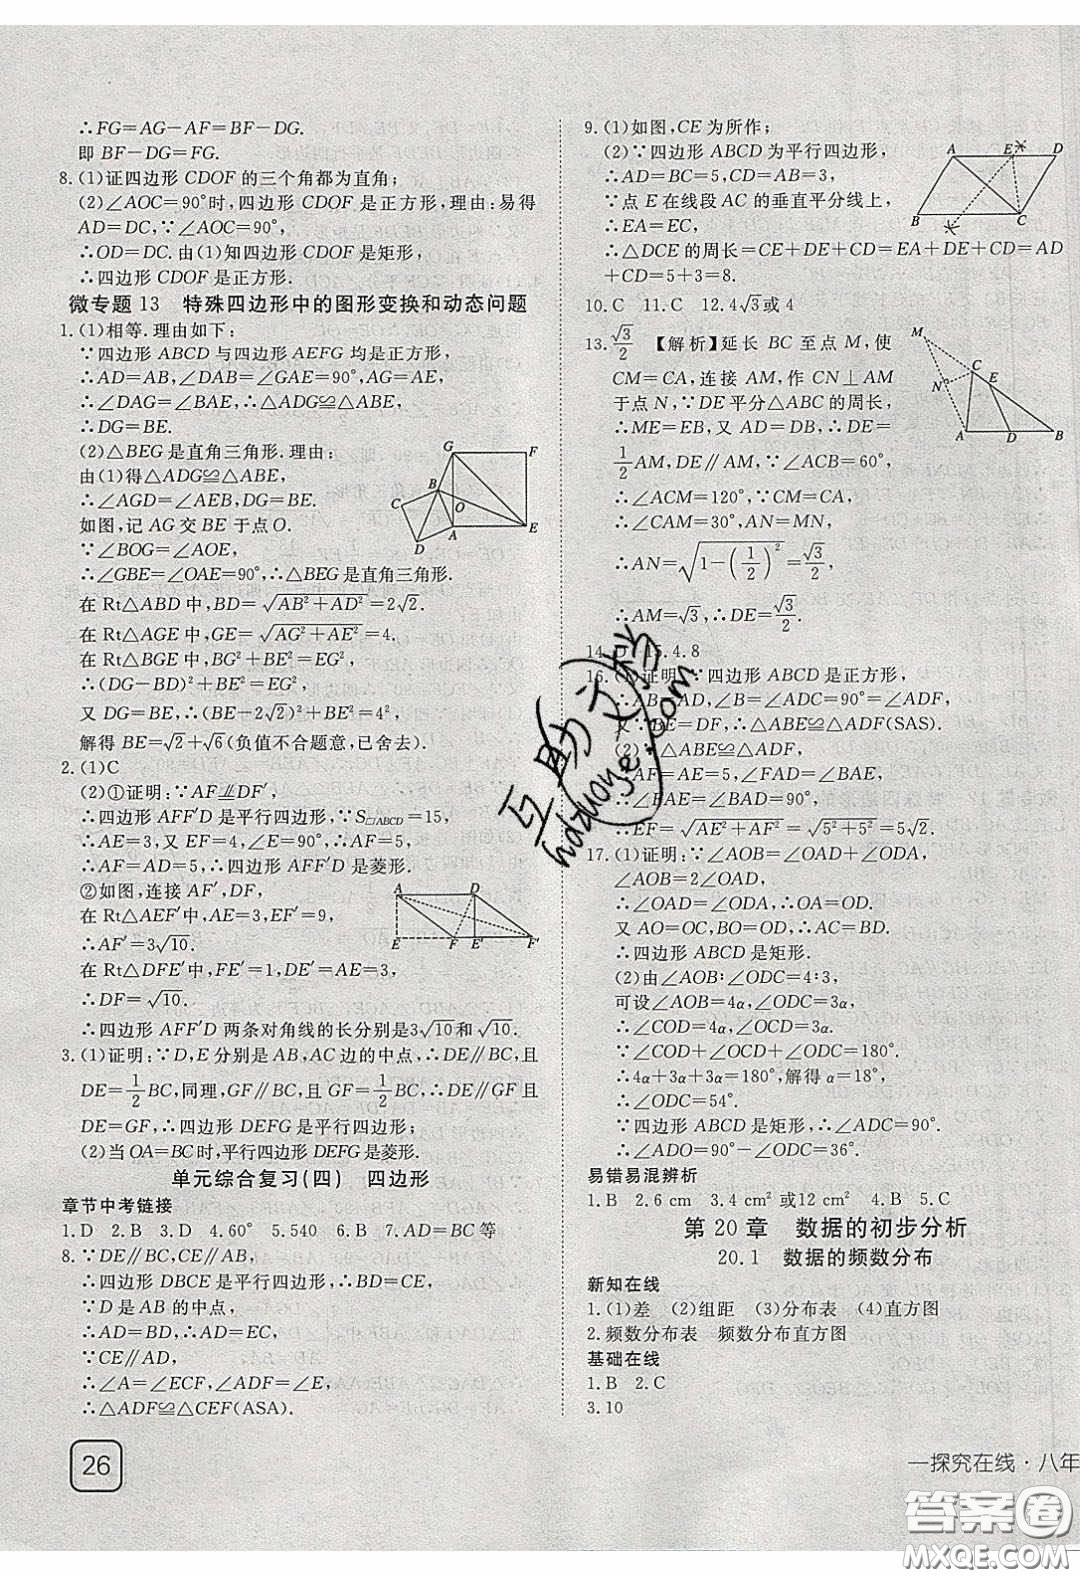 ∴FG=AG-AF=BF-DG.
即 BF-DG=FG.
8.(1)证四边形 CDOF 的三个角都为直角;
(2)∠AOC=90°时,四边形 CDOF 是正方形,理由:易得
AD=DC,∵∠AOC=90°,
∴OD=DC. 由(1)知四边形 CDOF 是矩形,
∴四边形 CDOF 是正方形.
微专题 13 特殊四边形中的图形变换和动态问题
1.(1)相等.理由如下:
∵四边形 ABCD 与四边形 AEFG 均是正方形,
∴AD=AB,∠DAB=∠GAE=90°,AG=AE,
∴∠DAG=∠BAE,∴△ADG≌△ABE,
∴DG=BE.
(2)△BEG 是直角三角形.理由:
由(1)得△ADG≌△ABE,
∴∠AGD=∠AEB,DG=BE.
如图,记 AG 交 BE 于点 O.
∵∠BOG=∠AOE,
∴∠GBE=∠OAE=90°,∴△BEG 是直角三角形.
在 Rt△ABD 中,BD=√(AB²+AD²)=2√2.
在 Rt△AGE 中,GE=√(AG²+AE²)=4.
在 Rt△BGE 中,BG²+BE²=EG²,
∴(DG-BD)²+BE²=EG²,
又 DG=BE,∴(BE-2√2)²+BE²=4²,
解得 BE=√2+√6(负值不合题意,已舍去).
2.(1)C
(2)①证明:∵AF⫽DF′,
∴四边形 AFF′D 是平行四边形,∵S▱ABCD=15,
∴AE=3,又 EF=4,∠E=90°,∴AF=5,
∴AF=AD=5,∴四边形 AFF′D 是菱形.
②如图,连接 AF′,DF,
在 Rt△AEF′中,AE=3,EF′=9,
∴AF′=3√10.
在 Rt△DFE′中,FE′=1,DE′=AE=3,
∴DF=√10.
∴四边形 AFF′D 两条对角线的长分别是3√10和√10.
3.(1)证明:∵D,E 分别是 AB,AC 边的中点,∴DE∥BC,且
DE=1/2 BC,同理,GF∥BC,且 GF=1/2 BC,∴DE∥GF 且
DE=GF,∴四边形 DEFG 是平行四边形;
(2)当 OA=BC 时,平行四边形 DEFG 是菱形.
单元综合复习(四) 四边形
章节中考链接
1.D 2.B 3.D 4.60° 5.540 6.B 7.AD=BC 等
8.∵DE∥BC,CE∥AB,
∴四边形 DBCE 是平行四边形,∴BD=CE,
∵D 是 AB 的中点,
∴AD=BD,∴AD=EC,
∵CE∥AD,
∴∠A=∠ECF,∠ADF=∠E,
∴△ADF≌△CEF(ASA).
26
9.(1)如图,CE 为所作;
(2)∵四边形 ABCD 为平行四边形,
∴AD=BC=5,CD=AB=3,
∵点 E 在线段 AC 的垂直平分线上,
∴EA=EC,
∴△DCE 的周长=CE+DE+CD=EA+DE+CD=AD
+CD=5+3=8.
10.C 11.C 12.4√3或 4
13.√3/2 【解析】延长 BC 至点 M,使
CM=CA,连接 AM,作 CN⊥AM
于点 N,∵DE 平分△ABC 的周长,
∴ME=EB,又 AD=DB,∴DE=
1/2 AM,DE∥AM,∵∠ACB=60°,
∴∠ACM=120°,∵CM=CA,
∴∠CAM=30°,AN=MN,
∴AN=√(1-(1/2)²)=√3/2,
∴AM=√3,∴DE=√3/2.
14.D 15.4.8
16.(1)证明:∵四边形 ABCD 是正方形,
∴AB=AD,∠B=∠ADC=90°=∠ADF,
又∵BE=DF,∴△ABE≌△ADF(SAS).
(2)∵△ABE≌△ADF,
∴AF=AE=5,∠FAD=∠BAE,
∴∠FAE=∠BAD=90°,
∴EF=√(AE²+AF²)=√(5²+5²)=5√2.
17.(1)证明:∵∠AOB=∠OAD+∠ODA,
∠AOB=2∠OAD,
∴∠OAD=∠ODA,∴OA=OD.
又 AO=OC,BO=OD,∴AC=BD.
∴四边形 ABCD 是矩形.
(2)由∠AOB∶∠ODC=4∶3,
可设∠AOB=4α,∠ODC=3α,
∴∠COD=4α,∠OCD=3α,
∵∠COD+∠OCD+∠ODC=180°,
∴4α+3α+3α=180°,解得 α=18°,
∴∠ODC=54°.
∵四边形 ABCD 是矩形,∴∠ADC=90°,
∴∠ADO=90°-∠ODC=36°.
易错易混辨析
1.B 2.6 cm 3.4 cm² 或12 cm² 4.B 5.C
第 20 章 数据的初步分析
20.1 数据的频数分布
新知在线
1.(1)差 (2)组距 (3)分布表 (4)直方图
2.频数分布表 频数分布直方图
基础在线
1.B 2.C
3.10
一探究在线·八年
互助文档
hdzuoye.com
答案圈
MXQE.COM